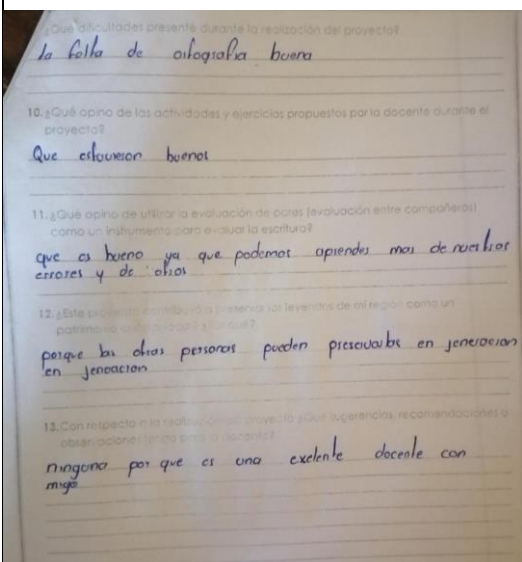 ¿Qué dificultades presenté durante la realización del proyecto?
la falla de ortografia buena
10. ¿Qué opino de las actividades y ejercicios propuestos por la docente durante el
proyecto?
Que estovieron buenos
11. ¿Qué opino de utilizar la evaluación de pares (evaluación entre compañeros)
como un instrumento para evaluar la escritura?
que es bueno ya que podemos aprender mas de nuestros
errores y de otros
12. ¿Este proyecto contribuyó a preservar las leyendas de mi región como un
patrimonio
porque las otras personas pueden preservarlas en jeneracion
en jeneacion
13. Con respecto a la realización del proyecto ¿Qué sugerencias, recomendaciones u
observaciones tengo para la docente?
ninguna por que es una exelente docente con
migo